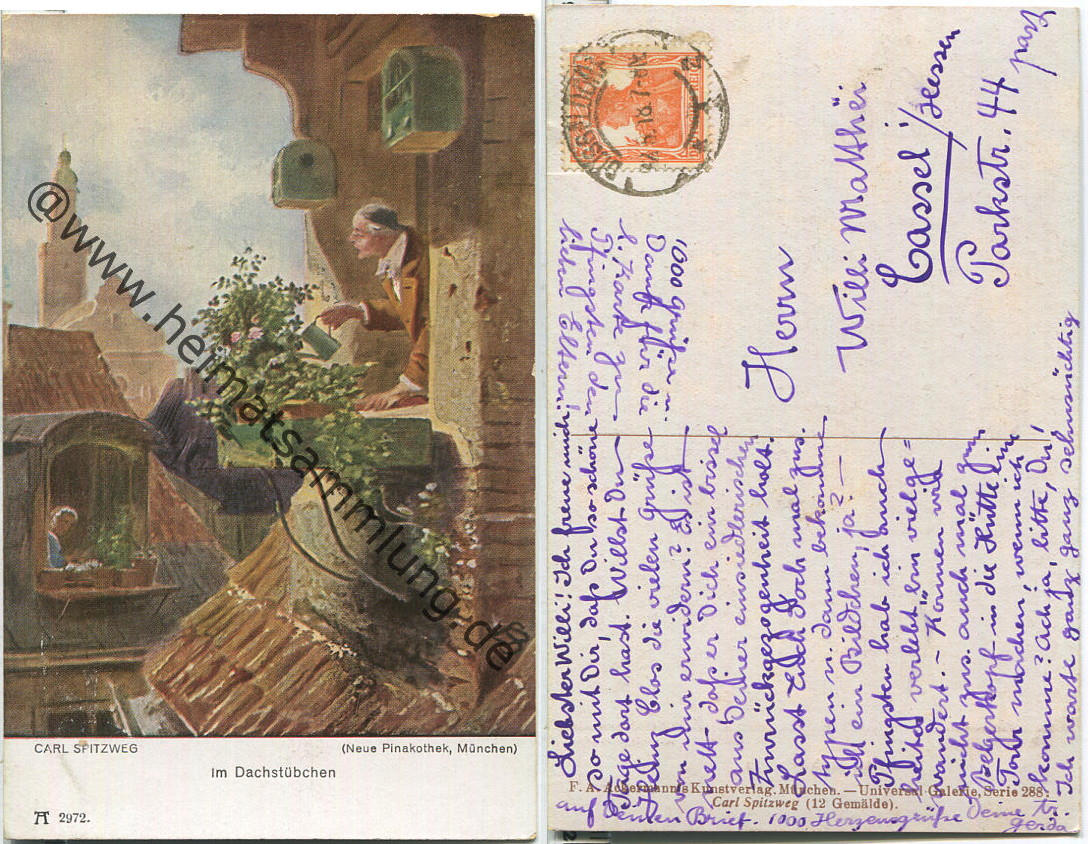 @www.heimatsammlung.de
CARL SPITZWEG
(Neue Pinakothek, München)
Im Dachstübchen
2972.
Herrn
Willi Matthäi
Cassel / Hessen
Parkstr. 44 part
Liebster Willi! Ich freue mich
so mit Dir, daß Du so schöne
Tage dort hast. Willst Du
die vielen Grüße
von ihm erwidern? Es ist
nett daß er Dich ein bissel
aus Deiner einsiedlerischen
Zurückgezogenheit holt.
Lasst Euch doch mal zus.
typen u. dann bekomme
ich ein Bildchen, ja? —
Pfingsten hab ich auch
verlebt bin vielge=
wandert. — Können wir
nicht zus. auch mal zum
in die Hütte eine
Tour machen, wenn ich
komme? Ach ja, bitte, Du!
Ich warte ganz, ganz sehnsüchtig
auf Deinen Brief. 1000 Herzensgrüße Deine tr.
Gerda
lieben Eltern!
Pfingsten den
l. Karte zu
Dank für die
1000 Grüße u.
F. A. Ackermann's Kunstverlag, München. — Universal-Galerie, Serie 288:
Carl Spitzweg (12 Gemälde).